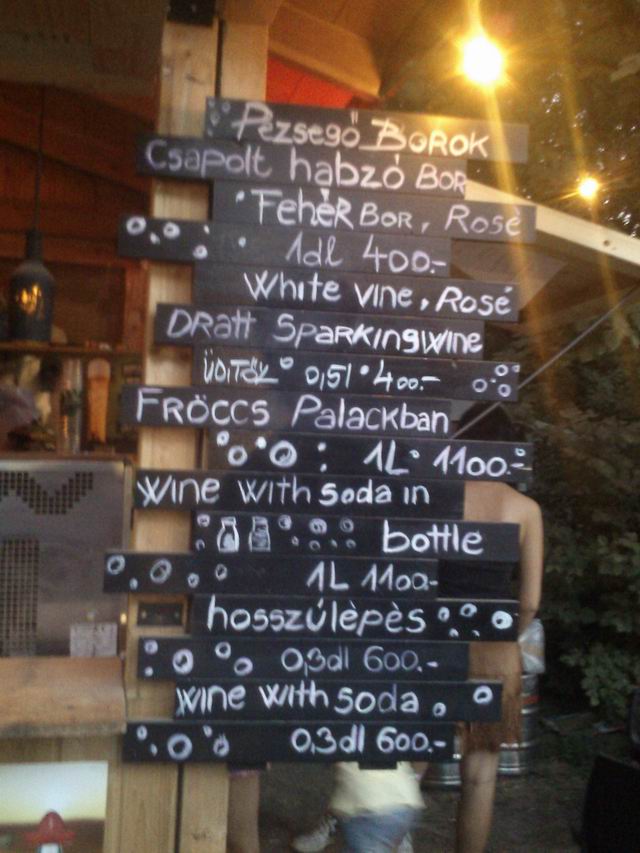 Pezsegő BOROK
Csapolt habzó BOR
FehéR BOR, Rosé
1dl 400.-
White vine, Rosé
DRAft SpaRkingwine
ÜDÍTŐK 0,5l 400.-
FRÖCCS Palackban
: 1L 1100.-
wine with soda in
bottle
1L 1100-
hosszúlèpès
0,3dl 600.-
wine with soda
0,3dl 600.-